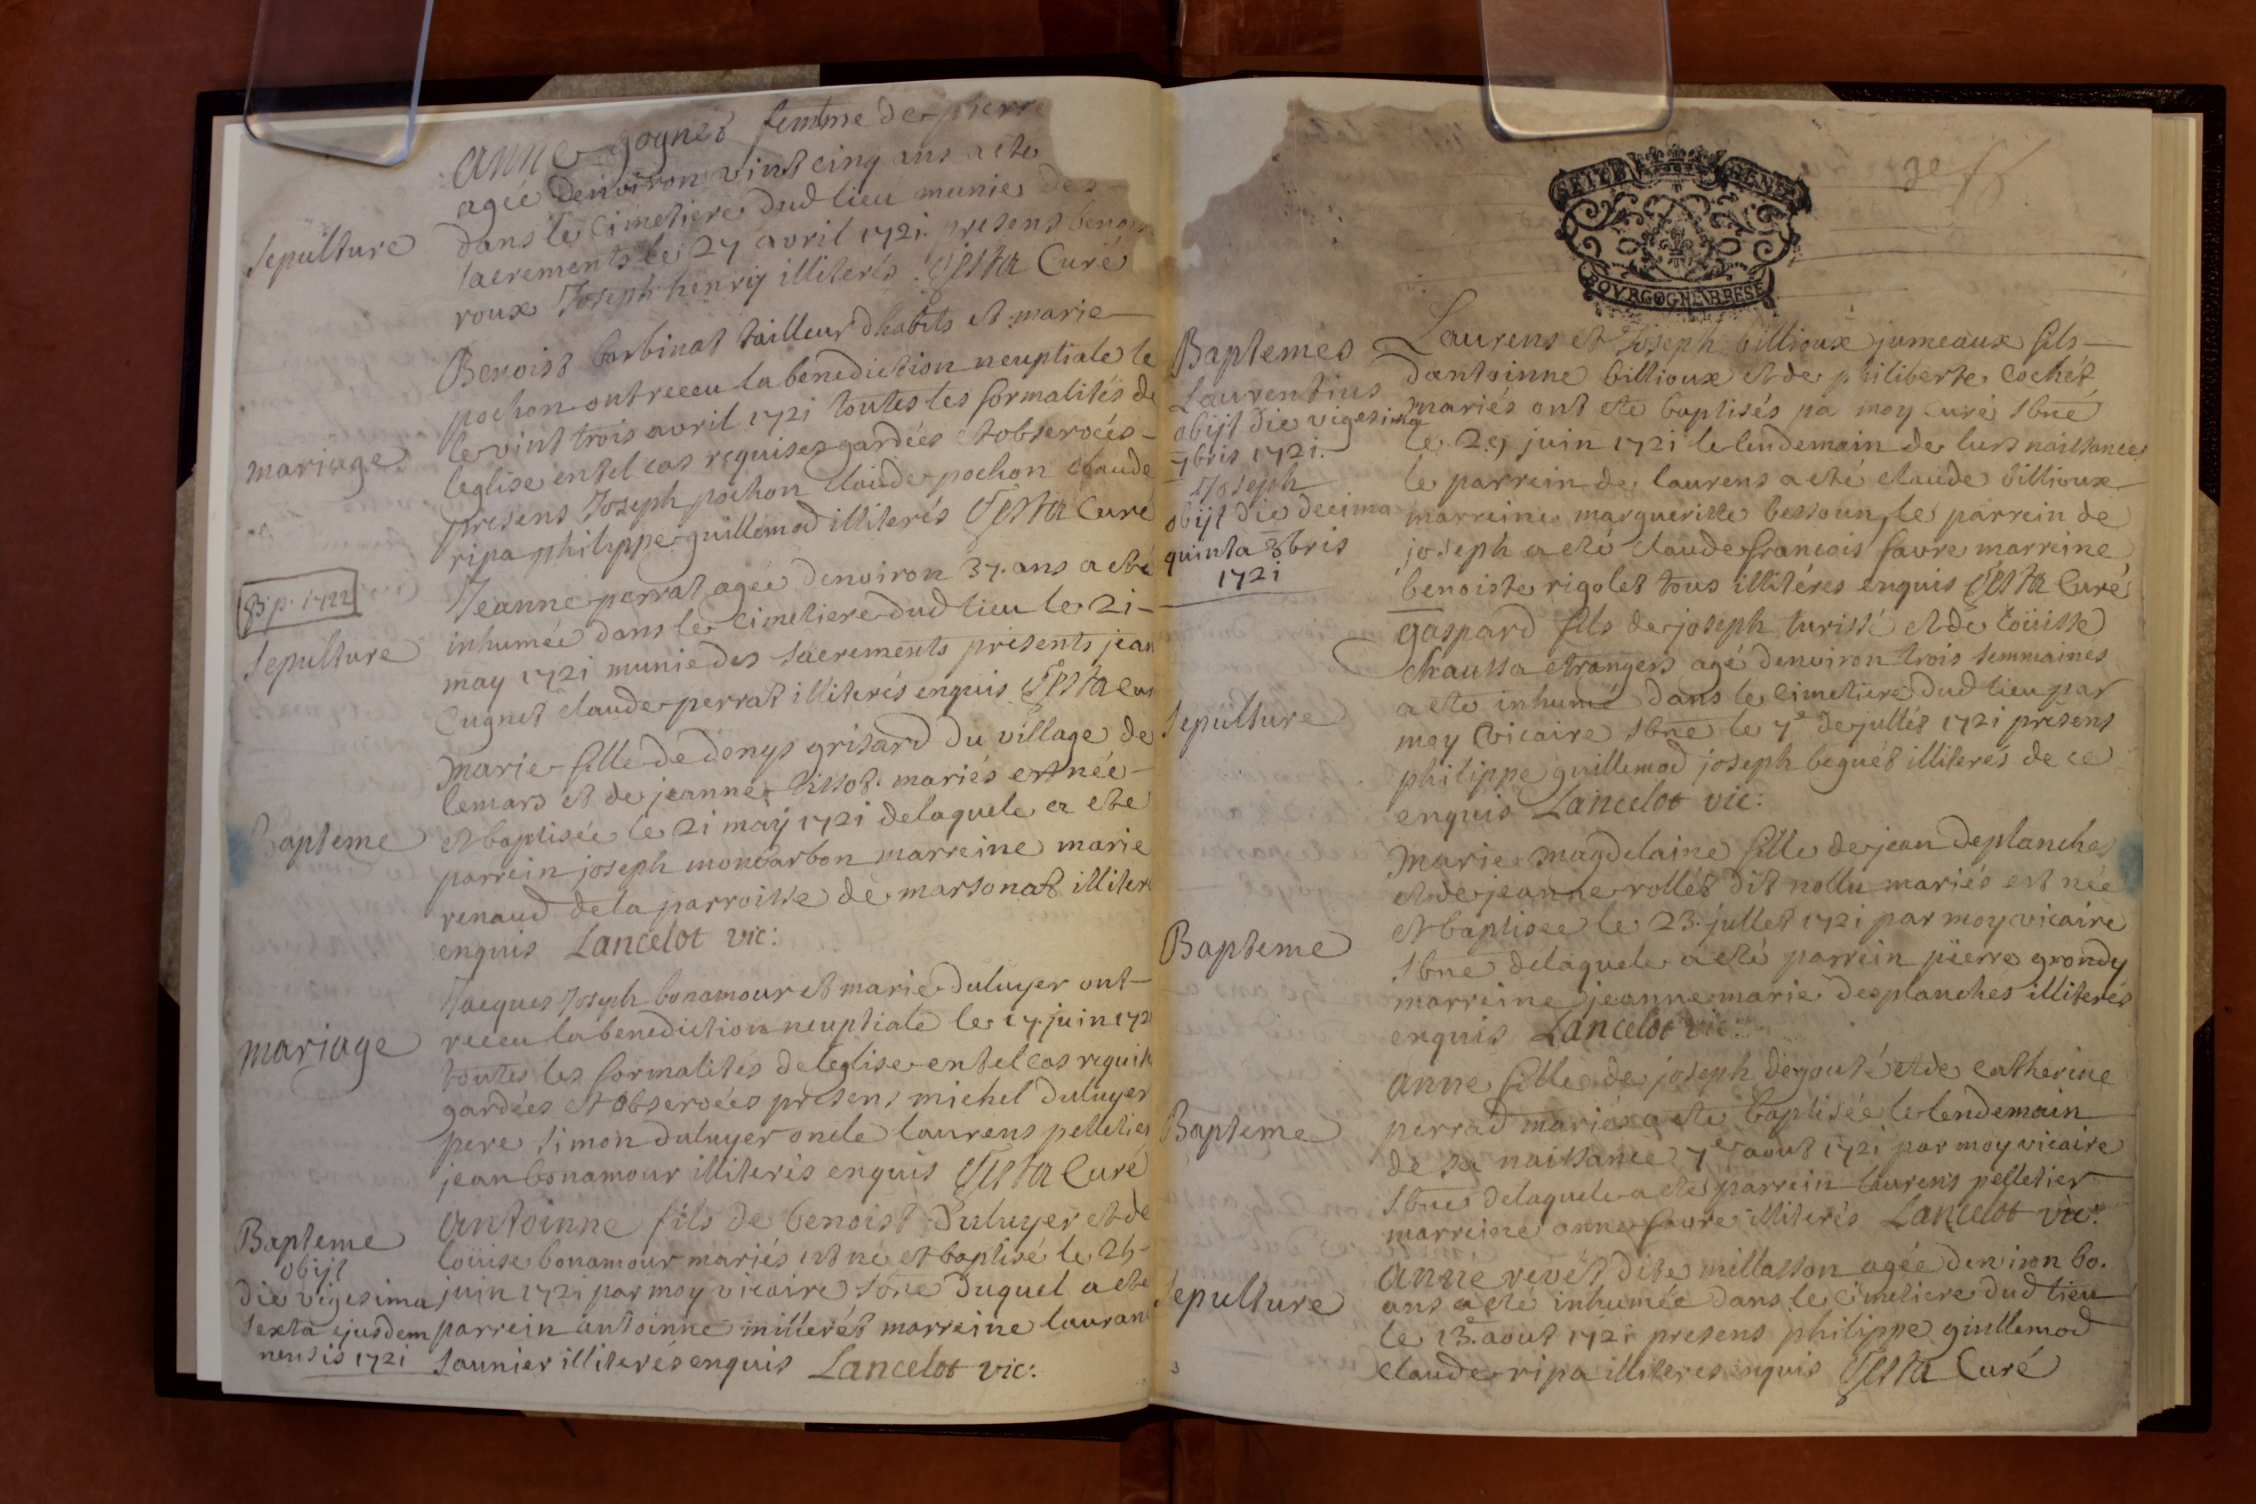 Anne gognet femme de pierre
agée denviron vint cinq ans a ete
Sepulture
dans le Cimetiere dud lieu munie des
sacrements le 27 avril 1721 presens benoist
roux Joseph henry illiterés Testa Curé
Benoist barbinat tailleur dhabits et marie
pochon ont receu la benediction neuptiale le
le vint trois avril 1721 toutes les formalités de
mariage
leglise en tel cas requises gardées et observées
presens Joseph pochon Claude pochon Claude
ripa philippe guillemod illiterés Testa Curé
Jeanne perrat agée denviron 37. ans a eté
inhumée dans le Cimetiere dud lieu le 21
Sepulture
may 1721 munie des sacrements présents jean
Cugnet claude perrat illiterés enquis Testa Cur
Marie fille de denys grisard du village de
lemard et de jeanne tissot mariés est née
Bapteme
et baptisée le 21 may 1721 delaquele a ete
parrein joseph moncarbon marreine marie
renaud de la parroisse de marsonat illiter
enquis Lancelot vic:
Jacques Joseph bonamour et marie duluyer ont
mariage
receu la benediction neuptiale le 17. juin 172
toutes les formalités de leglise en tel cas requis
gardées et observées presens michel duluyer
pere simon duluyer oncle laurens pelletier
jean bonamour illiterés enquis Testa Curé
Antoinne fils de benoist duluyer et de
Bapteme
louise bonamour mariés est né et baptisé le 25
obijt
die vigesima
juin 1721 par moy vicaire sbné duquel a ete
sexta ejusdem
parrein antoinne milleret marreine lauran
mensis 1721
saunier illiterés enquis Lancelot vic:
SEIZE GENER
BOURGOGNE BRESSE
Baptemes
Laurens et Joseph billioux jumeaux fils
Laurentius
dantoinne billioux et de philiberte Cochet
obijt die vigesima
mariés ont ete baptisés pa moy Curé sbné
7bris 1721.
le 29 juin 1721 le lendemain de lurs naissances
Joseph
le parrein de laurens a eté claude billioux
obijt die decima
marreine marguerite bessoun, le parrein de
quinta 8bris
joseph a eté claude francois favre marreine
1721
benoiste rigolet tous illitéres enquis Testa Curé
gaspard fils de joseph turissé et de Loüisse
Chaussa etrangers agé denviron trois semmaines
a ete inhumé dans le Cimetiere dud lieu par
Sepulture
moy vicaire sbné le 7e de jullet 1721 presens
philippe guillemod joseph beguet illiterés de ce
enquis Lancelot vic:
Marie magdelaine fille de jean deplanches
et de jeanne rollet dit nollu mariés est née
et baptisee le 23. jullet 1721 par moy vicaire
Bapteme
sbne delaquele a eté parrein pierre grondy
marreine jeanne marie desplanches illiterés
enquis Lancelot vic:
Anne fille de joseph degouté et de catherine
Bapteme
perrad mariés a ete baptisée le lendemain
de sa naissance 7e aout 1721 par moy vicaire
sbne delaquele a ete parrein laurens pelletier
marreine anne favre illiterés Lancelot vic:
Anne revet dite millasson agée denviron 60.
Sepulture
ans a eté inhumée dans le cimetiere dud lieu
le 13e. aout 1721 presens philippe guillemod
Claude ripa illiteres enquis Testa Curé